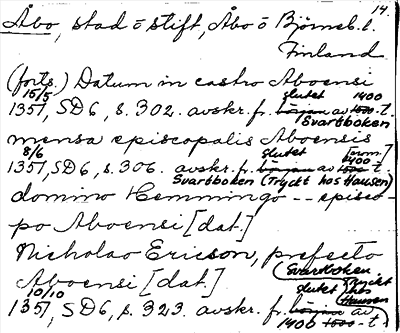 14.
Åbo, stad o stift, Åbo o Björneb. l.
Finland
(forts.) Datum in castro Aboensi
15/5 slutet 1400
1357, SD6, s. 302. avskr. fr. början av 1500-t.
Svartboken
mensa episcopalis Aboensis
8/6 slutet
1357, SD6, s. 306. avskr. fr. början av 1400-t.
Svartboken (Tryckt hos Hausen)
domino Hemmingo -- episco-
po Aboensi [dat.]
Nicholao Ericson, prefecto
(Svartboken
Aboensi [dat.] slutet Tryckt hos
10/10 Hausen)
1357, SD6, s. 323. avskr. fr. början av
1400 1500-t.